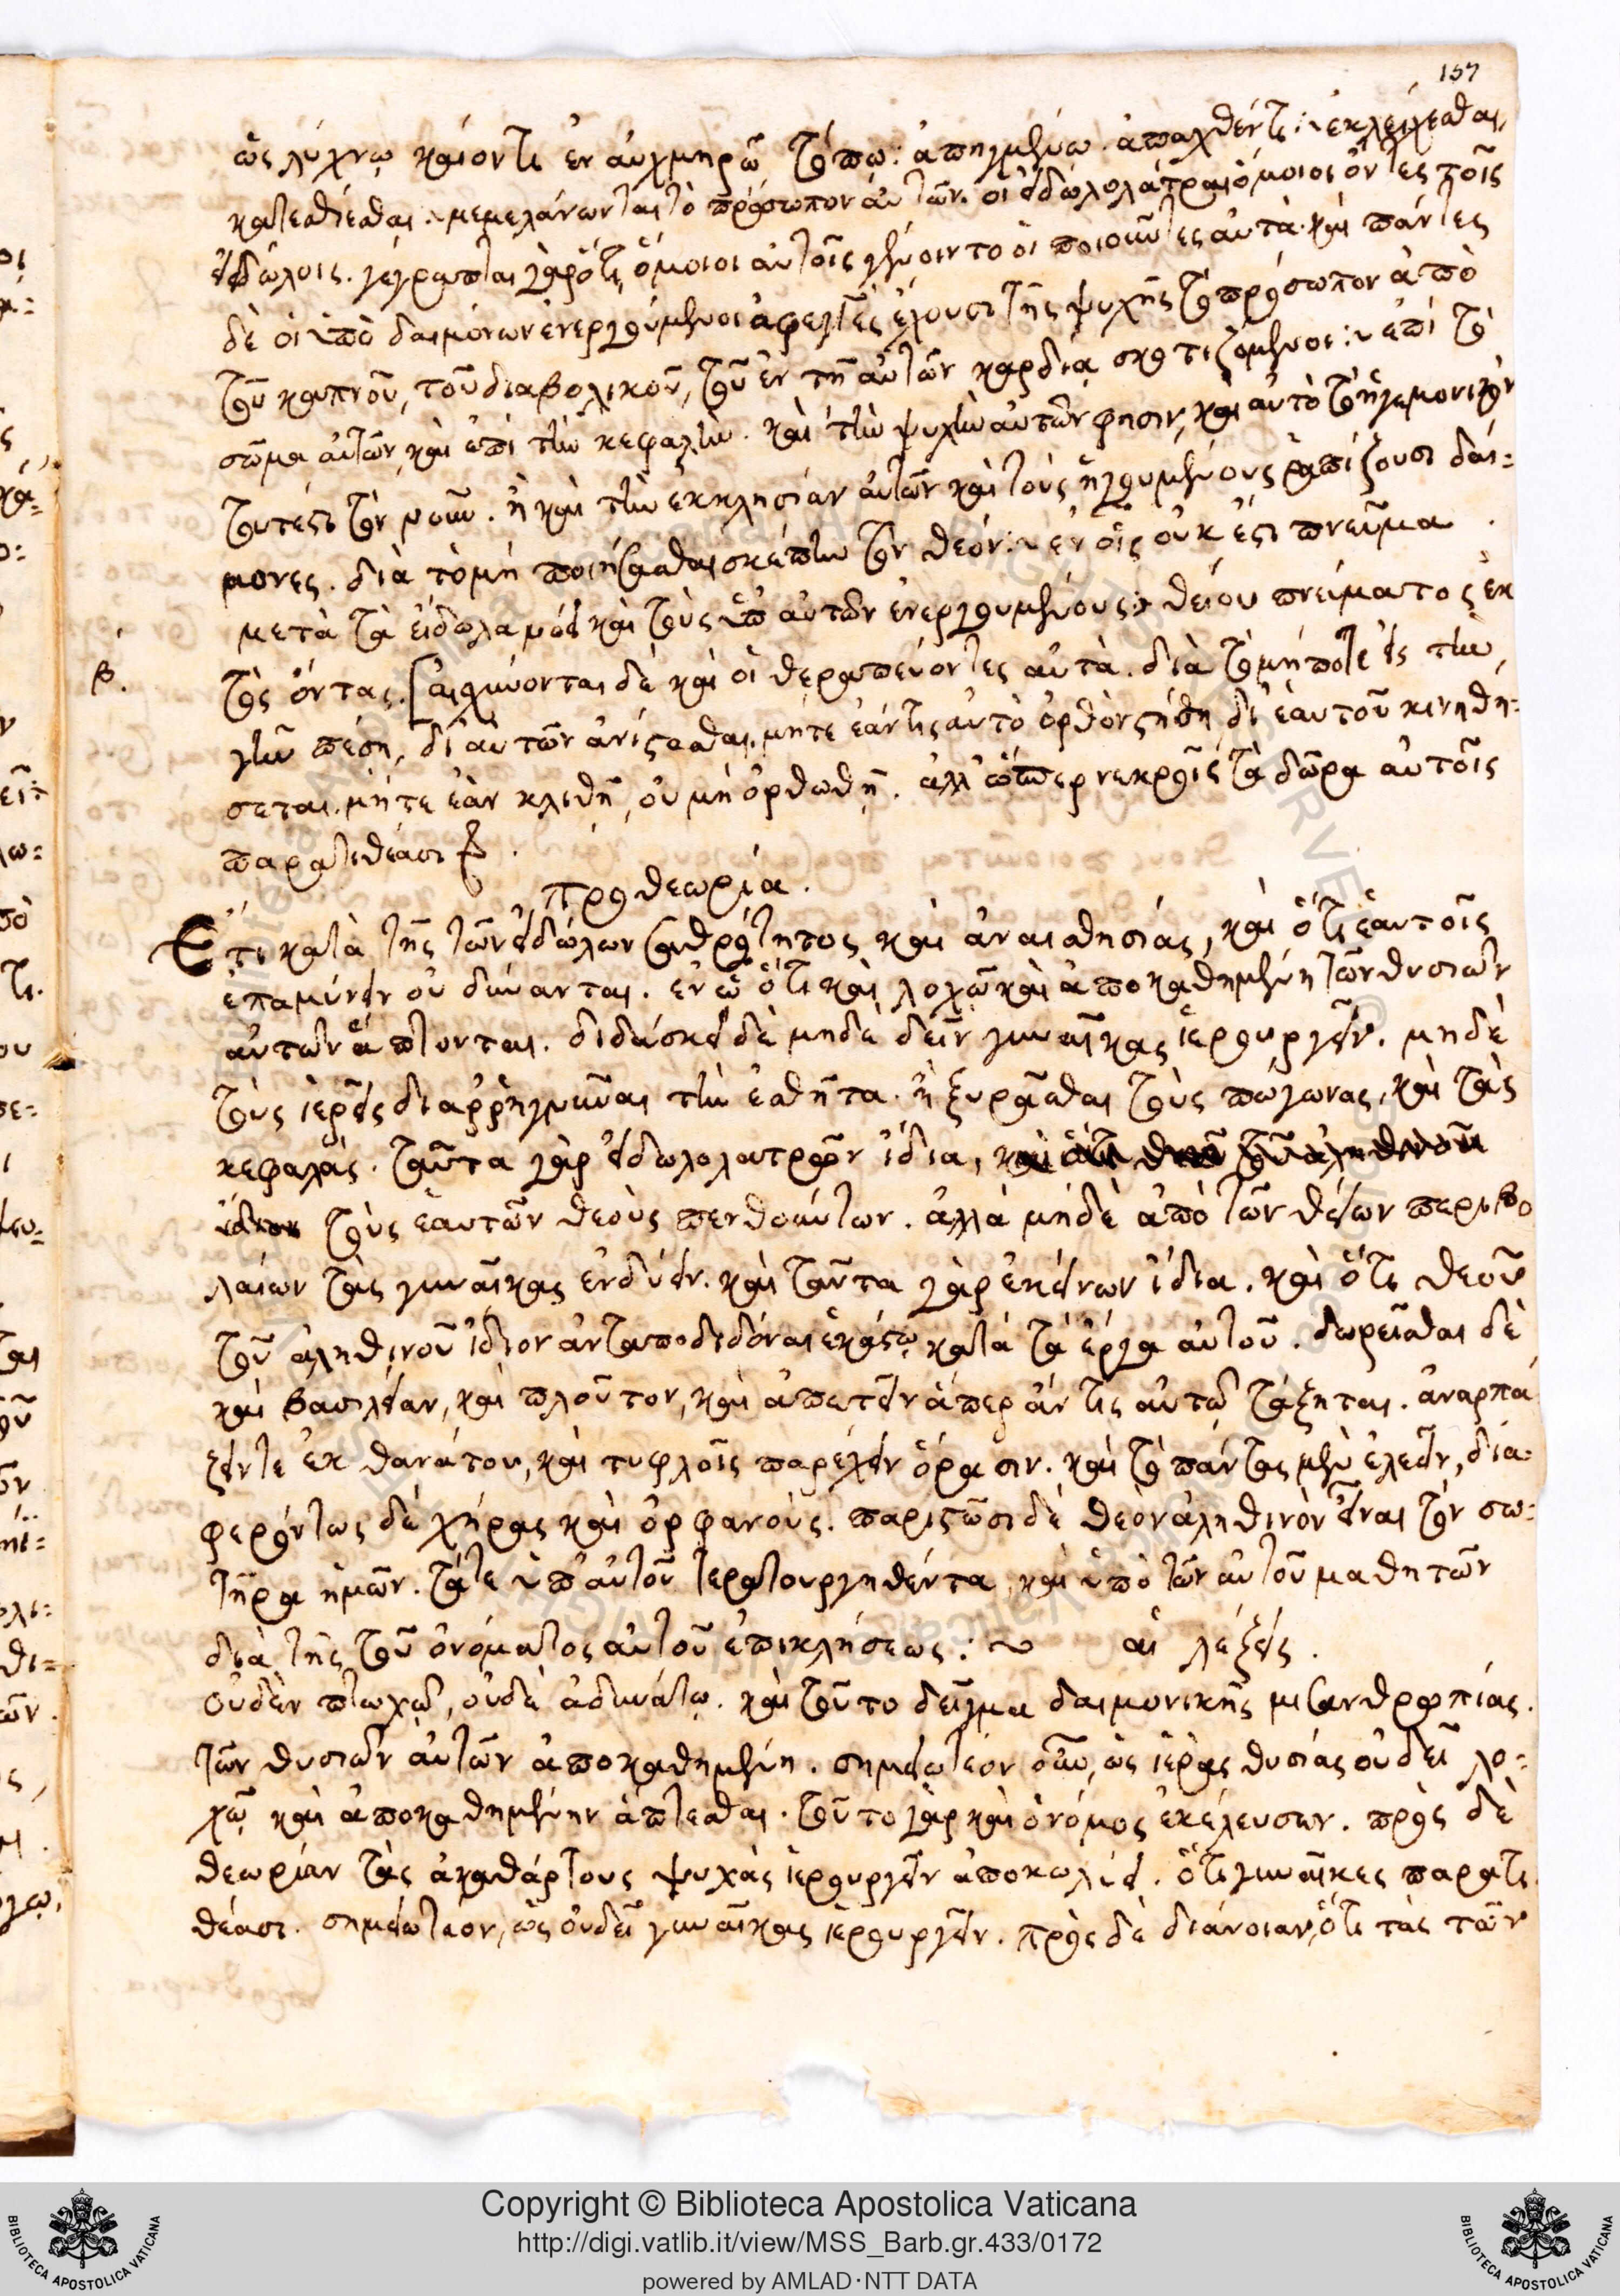 157
ὡς λύχνῳ καίοντι ἐν αὐχμηρῷ τόπῳ· ἀπηγμένῳ. ἀπαχθέντι :~ ἐκλείχεσθαι,
κατεσθίεσθαι :~ μεμελάνωνται τὸ πρόσωπον αὐτῶν. οἱ εἰδωλολάτραι ὅμοιοι ὄντες τοῖς
εἰδώλοις. γέγραπται γὰρ ὅτι ὅμοιοι αὐτοῖς γένοιντο οἱ ποιοῦντες αὐτὰ. καὶ πάντες
δὲ οἱ ὑπὸ δαιμόνων ἐνεργούμενοι ἀφεγγὲς ἔχουσι τῆς ψυχῆς τὸ πρόσωπον ἀπὸ
τοῦ καπνοῦ, τοῦ διαβολικοῦ, τοῦ ἐν τῇ αὐτῶν καρδίᾳ σκοτιζόμενοι :~ ἐπὶ τὸ
σῶμα αὐτῶν, καὶ ἐπὶ τὴν κεφαλὴν. καὶ τὴν ψυχὴν αὐτῶν φησιν, καὶ αὐτὸ τὸ ἡγεμονικὸν
τουτέστι τὸν νοῦν. ἢ καὶ τὴν ἐκκλησίαν αὐτῶν καὶ τοὺς ἡγουμένους ῥαπίζουσι δαί=
μονες. διὰ τὸ μὴ ποιήσασθαι σκέπην τὸν θεόν :~ ἐν οἷς οὐκ ἔστι πνεῦμα.
μετὰ τὰ εἴδωλα νόει καὶ τοὺς ὑπ᾽ αὐτῶν ἐνεργουμένους· θείου πνεύματος ἐκ
β.
τὸς ὄντας. [αἰσχύνονται δὲ καὶ οἱ θεραπεύοντες αὐτὰ. διὰ τὸ μήποτε εἰς τὴν,
γῆν πέσῃ, δι᾽ αὐτῶν ἀνίστασθαι. μήτε ἐάν τις αὐτὸ ὀρθὸν στήσῃ δι᾽ ἑαυτοῦ κινηθή=
σεται. μήτε ἐὰν κλιθῇ, οὐ μὴ ὀρθωθῇ. ἀλλ᾽ ὥσπερ νεκροῖς τὰ δῶρα αὐτοῖς
παρατιθέασι
προθεωρία.
Ἔτι κατὰ τῆς τῶν εἰδώλων σαθρότητος καὶ ἀναισθησίας, καὶ ὅτι ἑαυτοῖς
ἐπαμύνειν οὐ δύνανται. ἐν ᾧ ὅτι καὶ λοχῶ καὶ ἀποκαθημένη τῶν θυσιῶν
αὐτῶν ἅπτονται. διδάσκει δὲ μηδὲ δεῖν γυναῖκας ἱερουργεῖν. μηδὲ
τοὺς ἱερεῖς διαρρηγνῦναι τὴν ἐσθῆτα. ἢ ξυρᾶσθαι τοὺς πώγωνας, καὶ τὰς
κεφαλάς. ταῦτα γὰρ εἰδωλολατρῶν ἴδια,
τοὺς ἑαυτῶν θεοὺς πενθούντων. ἀλλὰ μηδὲ ἀπὸ τῶν θείων περιβο
λαίων τὰς γυναῖκας ἐνδύειν. καὶ ταῦτα γὰρ ἐκείνων ἴδια. καὶ ὅτι θεοῦ
τοῦ ἀληθινοῦ ἴδιον ἀνταποδιδόναι ἑκάστῳ κατὰ τὰ ἔργα αὐτοῦ. δωρεῖσθαι δὲ
καὶ βασιλείαν, καὶ πλοῦτον, καὶ ἀπαιτεῖν ἅπερ ἄν τις αὐτῷ τάξηται. ἀναρπά
ζειν τε ἐκ θανάτου, καὶ τυφλοῖς παρέχειν ὅρασιν. καὶ τὸ πάντας μὲν ἐλεεῖν, δια=
φερόντως δὲ χήρας καὶ ὀρφανούς. παριστῶσι δὲ θεὸν ἀληθινὸν εἶναι τὸν σω=
τῆρα ἡμῶν. τά τε ὑπ᾽ αὐτοῦ τερατουργηθέντα, καὶ ὑπὸ τῶν αὐτοῦ μαθητῶν
διὰ τῆς τοῦ ὀνόματος αὐτοῦ ἐπικλήσεως :~ αἱ λέξεις.
Οὐδὲν πτωχῷ, οὐδὲ ἀδυνάτῳ. καὶ τοῦτο δεῖγμα δαιμονικῆς μισανθρωπίας.
τῶν θυσιῶν αὐτῶν ἀποκαθημένη. σημειωτέον οὖν, ὡς ἱερὰς θυσίας οὐ δεῖ λο=
χῶ καὶ ἀποκαθημένην ἅπτεσθαι. τοῦτο γὰρ καὶ ὁ νόμος ἐκέλευσεν. πρὸς δὲ
θεωρίαν τὰς ἀκαθάρτους ψυχὰς ἱερουργεῖν ἀποκωλύει. ὅτι γυναῖκες παρατι
θέασι. σημειωτέον, ὡς οὐ δεῖ γυναῖκας ἱερουργεῖν. πρὸς δὲ διάνοιαν, ὅτι τὰς τῶν
Copyright © Biblioteca Apostolica Vaticana
http://digi.vatlib.it/view/MSS_Barb.gr.433/0172
powered by AMLAD·NTT DATA
BIBLIOTECA APOSTOLICA VATICANA
BIBLIOTECA APOSTOLICA VATICANA